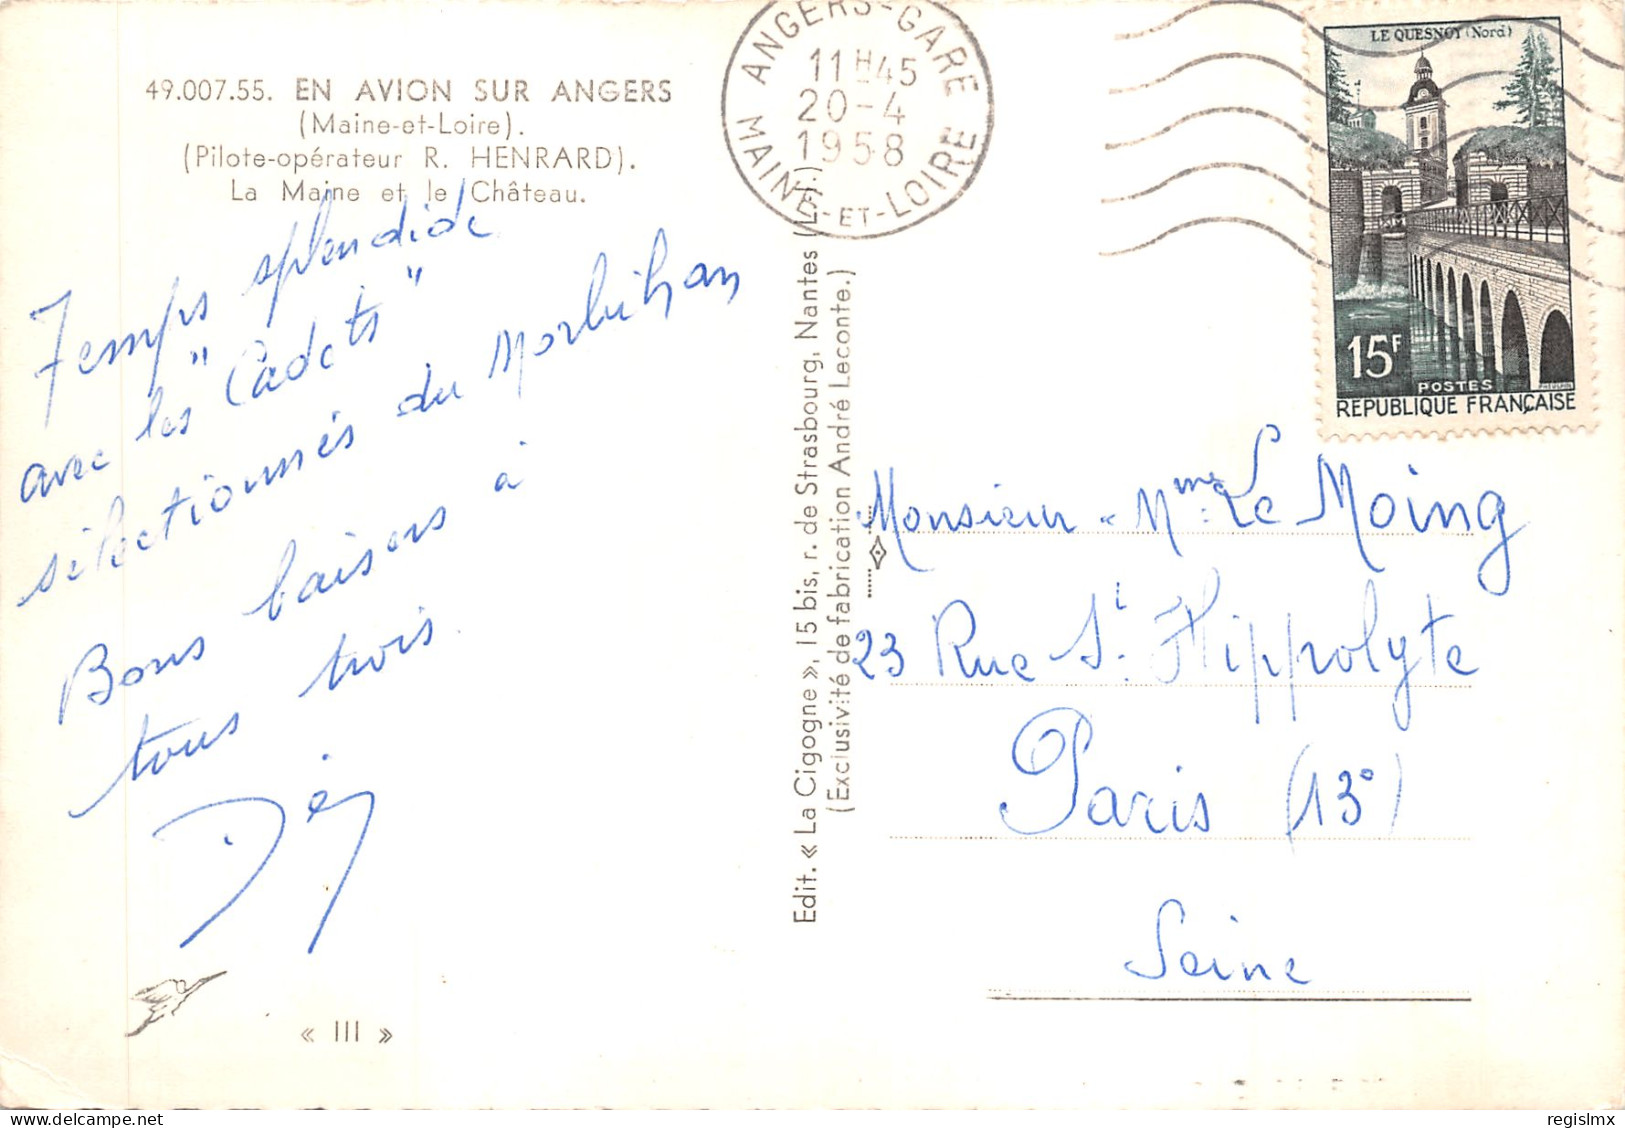 49.007.55. EN AVION SUR ANGERS
(Maine-et-Loire).
(Pilote-opérateur R. HENRARD).
La Maine et le Château.
Temps splendide
avec les "Cadets"
sélectionnés du Morbihan
Bons baisers à
tous trois.
« III »
Edit. « La Cigogne », 15 bis, r. de Strasbourg, Nantes (L.-I.)
(Exclusivité de fabrication André Leconte.)
ANGERS-GARE
11H45
20-4
1958
MAINE-ET-LOIRE
LE QUESNOY (Nord)
15F
POSTES
REPUBLIQUE FRANÇAISE
Monsieur & Mme Le Moing
23 Rue St. Hippolyte
Paris (13°)
Seine
regislmx